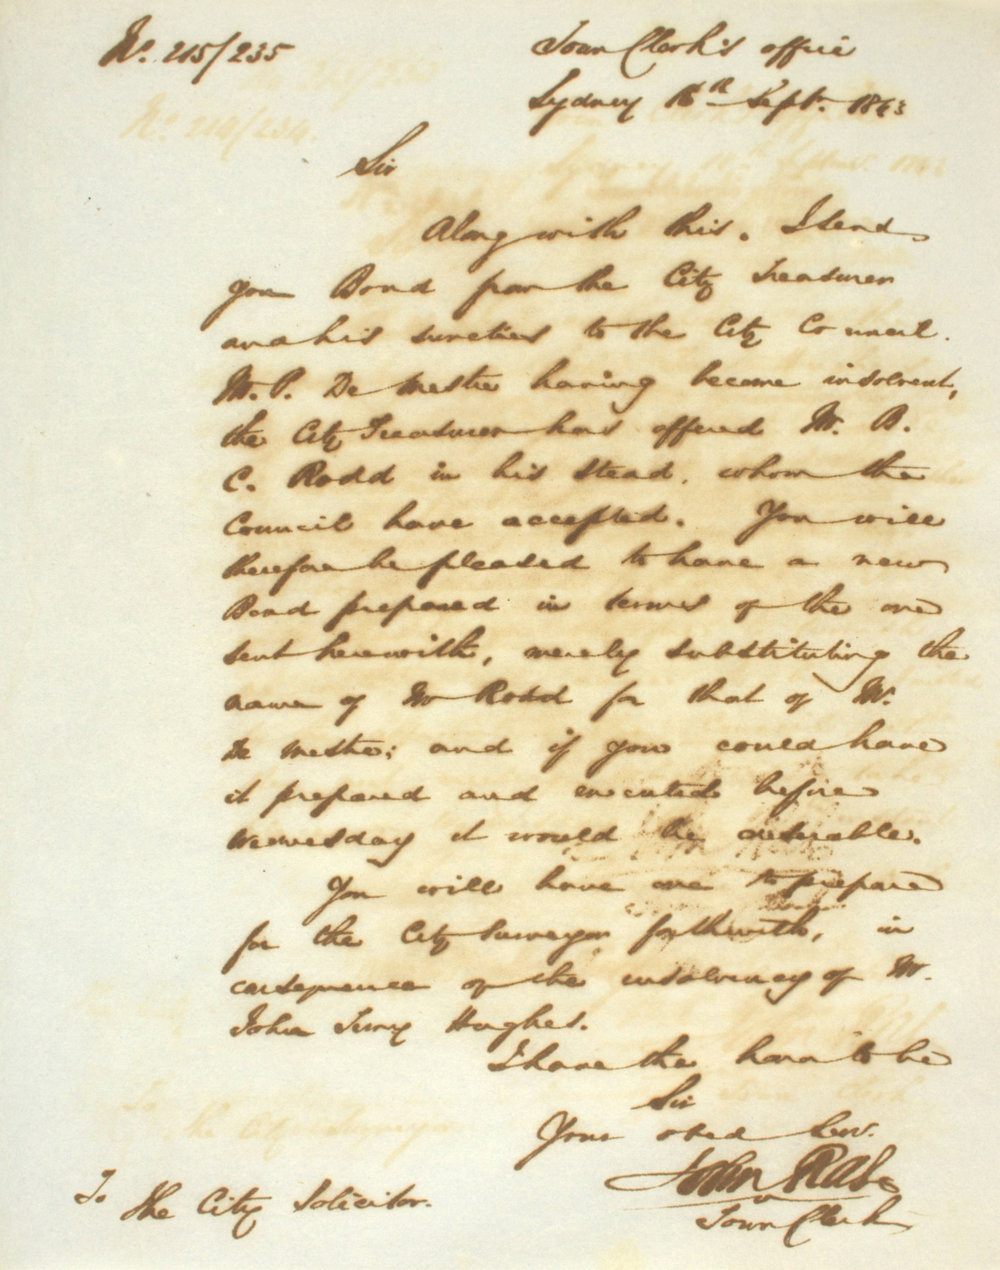 No. 215/235
Town Clerk's office
Sydney 16th Sept. 1843
Sir
Along with this, I send
you Bond from the City Treasurer
and his sureties to the City Council.
Mr. P. De Mestre having become insolvent,
the City Treasurer has offered Mr. B.
C. Rodd in his stead, whom the
Council have accepted. You will
therefore be pleased to have a new
Bond prepared in terms of the one
sent herewith, merely substituting the
name of Mr Rodd for that of Mr.
De Mestre; and if you could have
it prepared and executed before
Wednesday it would be desirable.
You will have one to prepare
for the City Surveyor, forthwith, in
consequence of the insolvency of Mr.
John Terry Hughes.
I have the honor to be
Sir
Your obed Serv.
John Rae
Town Clerk
To
the City Solicitor.
No. 214/234.
the City Surveyor